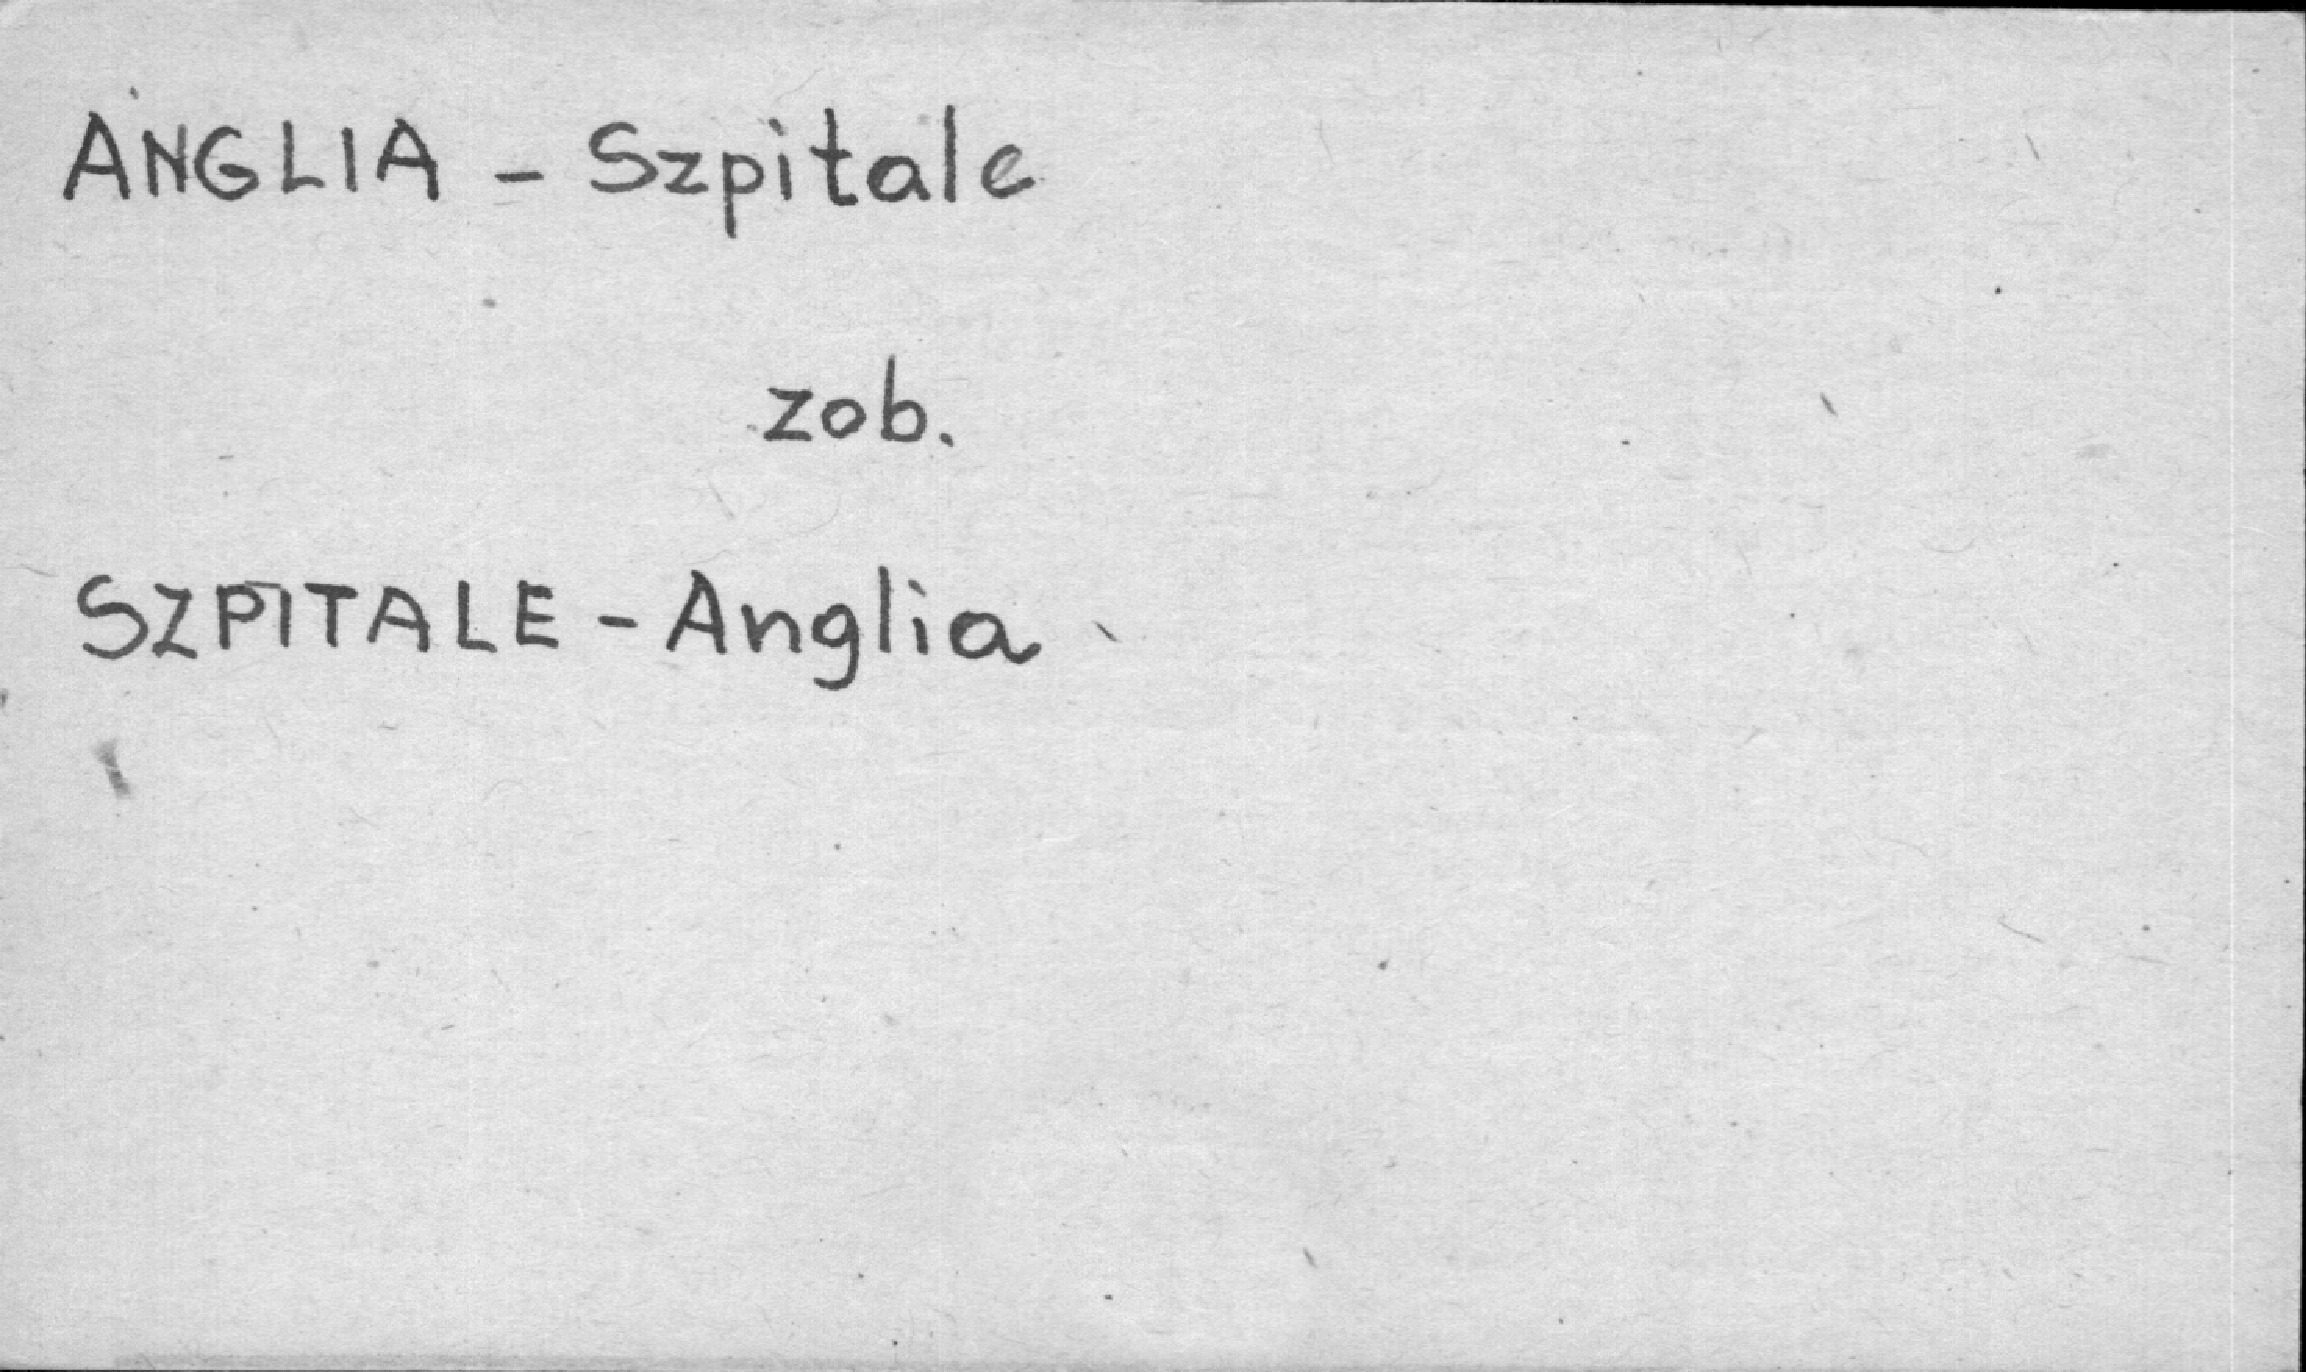 ANGLIA - Szpitale
zob.
SZPITALE - Anglia